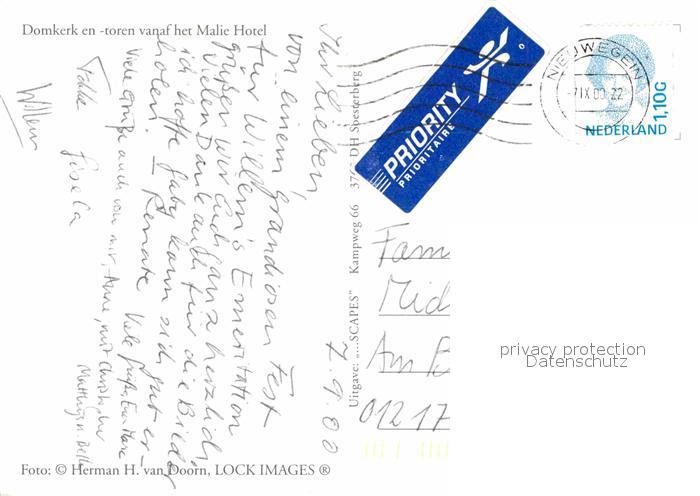 Domkerk en -toren vanaf het Malie Hotel
Ihr Lieben,
von einem grandiosen Fest
für Willem's Emeritation
grüßen wir Euch ganz herzlich.
Vielen Dank auch für die Bilder
ich hoffe Gaby kann sich gut er-
holen! – Renate
Viele Grüße auch von mir, Anne, mit Christopher
Matthijs
Viele Grüße, Eva Marie
Fokke
Gisela
Willem
7.9.00
Uitgave: „...SCAPES" Kampweg 66 DH Soesterberg
PRIORITY
PRIORITAIRE
NIEUWEGEIN
-7.IX.00.22
1,10G
NEDERLAND
Fam
Mid
Am
01217
privacy protection
Datenschutz
Foto: © Herman H. van Doorn, LOCK IMAGES ®